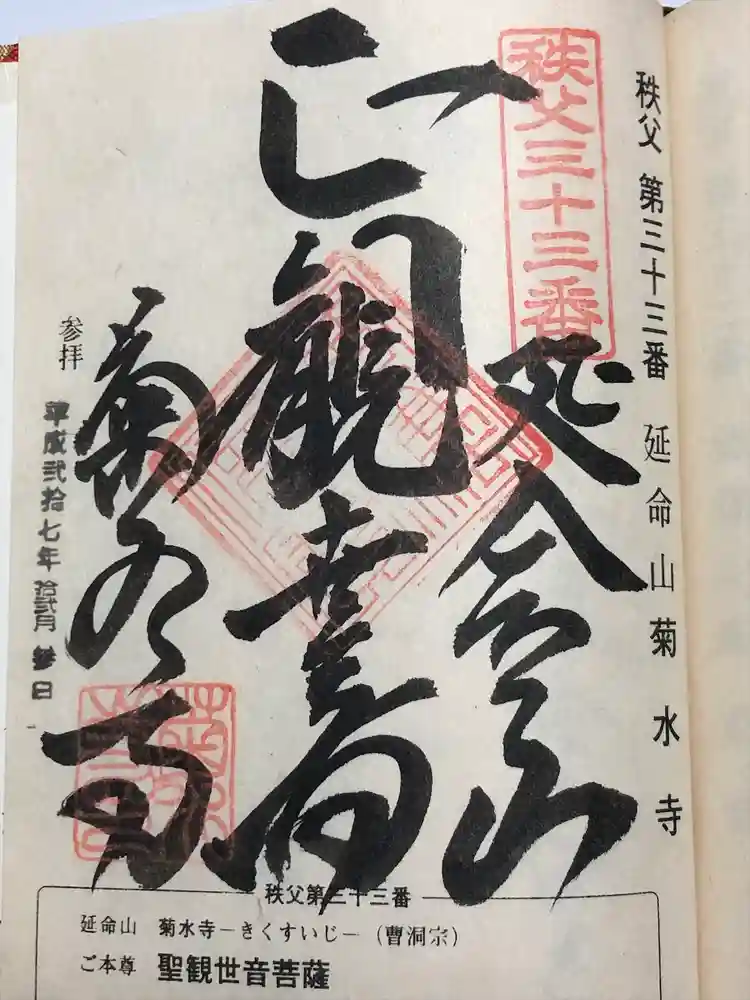 秩父 第三十三番 延命山菊水寺
秩父三十三番
延命山
正観世音
菊水寺
参拝
平成弐拾七年拾弐月参日
秩父第三十三番
延命山 菊水寺－きくすいじ－（曹洞宗）
ご本尊 聖観世音菩薩